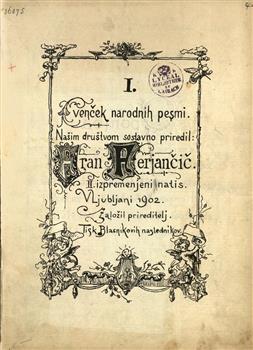 16075
I.
K. K.
LYCEAL
BIBLIOTHEK
LAIBACH
Venček narodnih pesmi.
Našim društvom sostavno priredil:
Fran Ferjančič.
II. izpremenjeni natis.
V Ljubljani 1902.
Založil prireditelj.
Tisk Blasnikovih naslednikov.